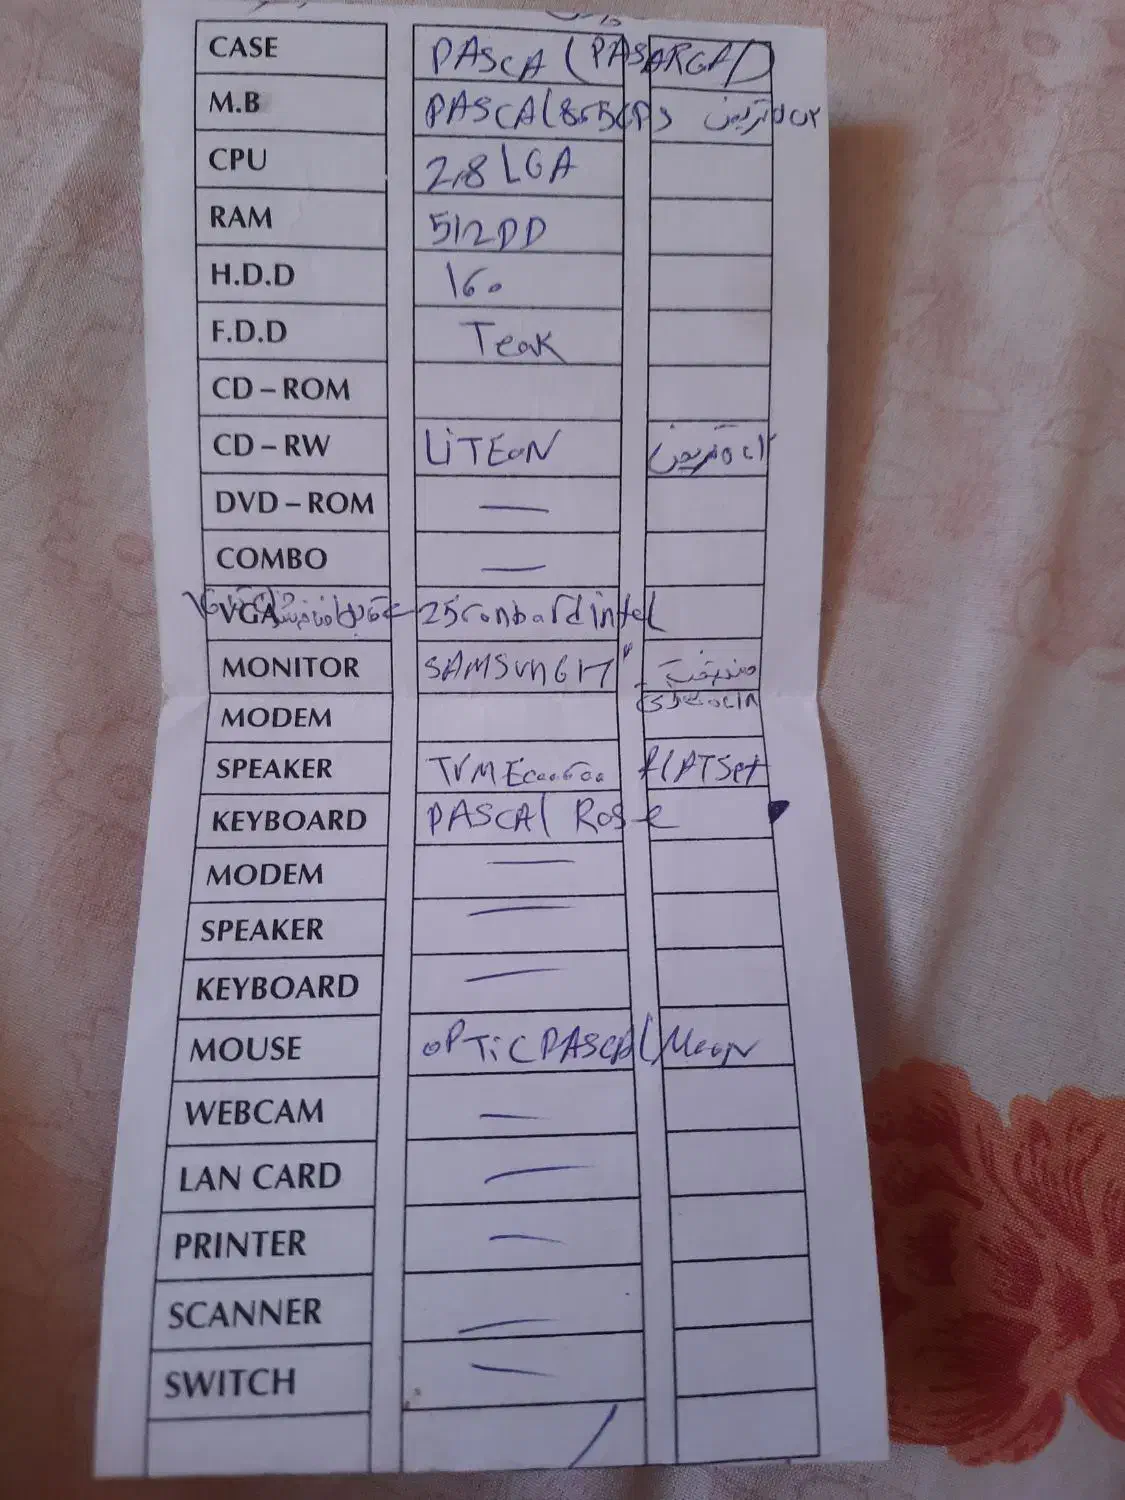 CASE PASCAL (PASARGAD)
M.B PASCAL
CPU 2,8 LGA
RAM 512DD
H.D.D 160
F.D.D Teak
CD – ROM
CD – RW LiTEoN
DVD – ROM —
COMBO —
VGA onbord intel
MONITOR SAMSUNG 17"
MODEM
SPEAKER TVM FLATSet
KEYBOARD PASCAL Rose
MODEM —
SPEAKER —
KEYBOARD —
MOUSE oPTiC PASCAL Moon
WEBCAM —
LAN CARD —
PRINTER —
SCANNER —
SWITCH —